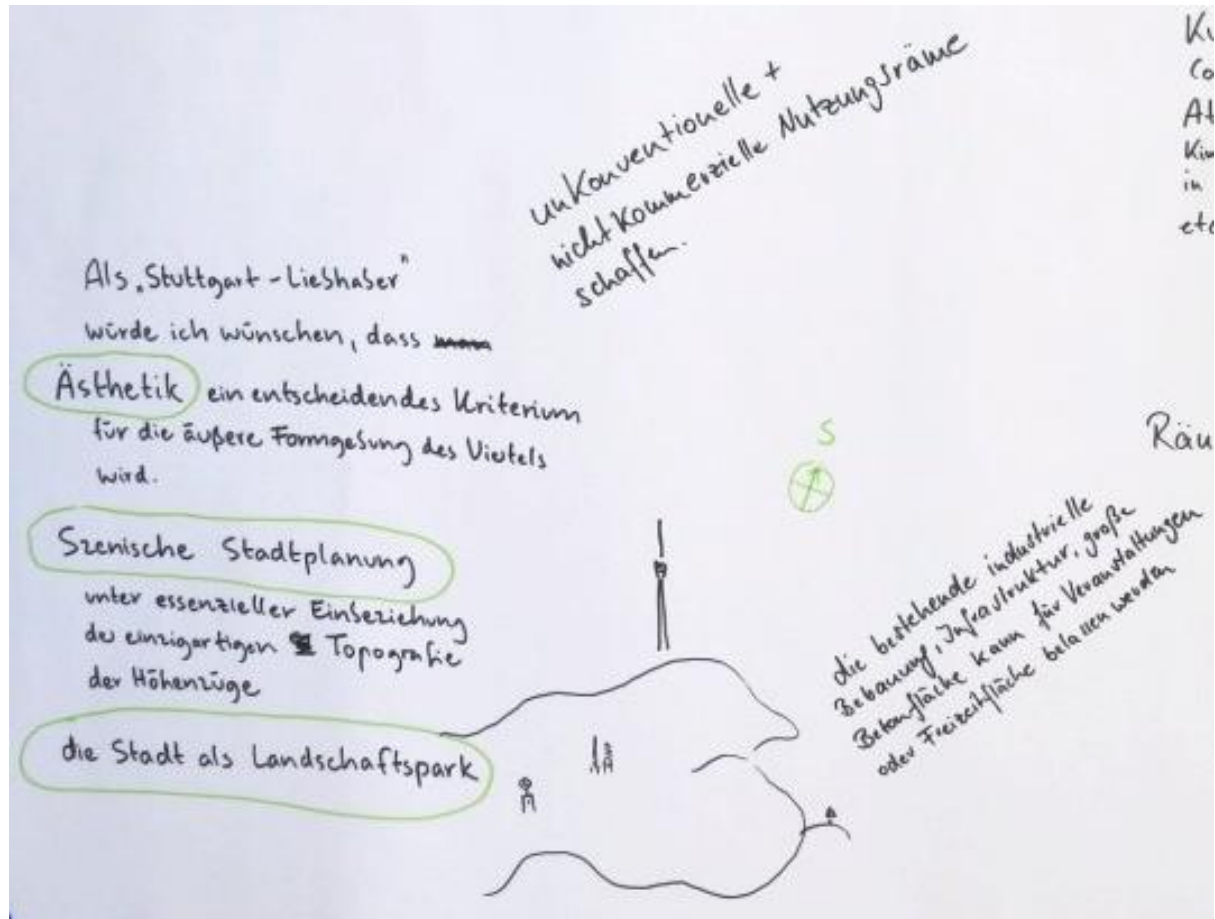 unkonventionelle +
nicht kommerzielle Nutzungsräume
schaffen.
Als „Stuttgart-Liebhaber"
würde ich wünschen, dass
Ästhetik ein entscheidendes Kriterium
für die äußere Formgebung des Viertels
wird.
Szenische Stadtplanung
unter essenzieller Einbeziehung
der einzigartigen Topografie
der Höhenzüge
die Stadt als Landschaftspark
S
die bestehende industrielle
Bebauung, Infrastruktur, große
Betonfläche kann für Veranstaltungen
oder Freizeitfläche belassen werden
Räu
in
etc